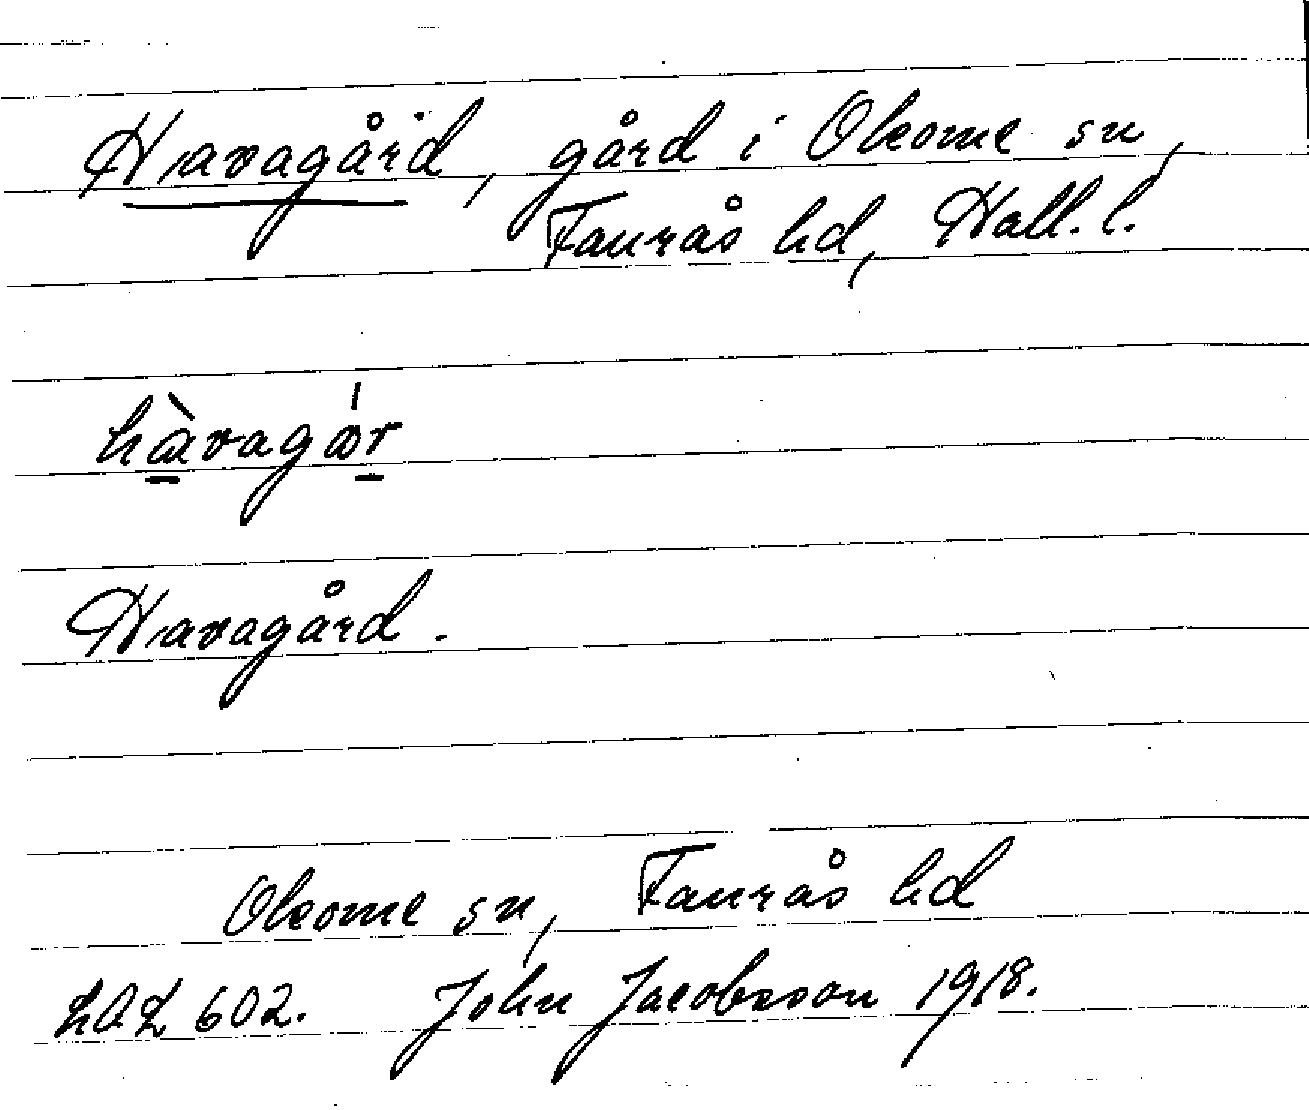 Havagård, gård i Okome sn,
Faurås hd, Hall. l.
hàvagór
Havagård.
Okome sn, Faurås hd
LAL 602. John Jacobsson 1918.